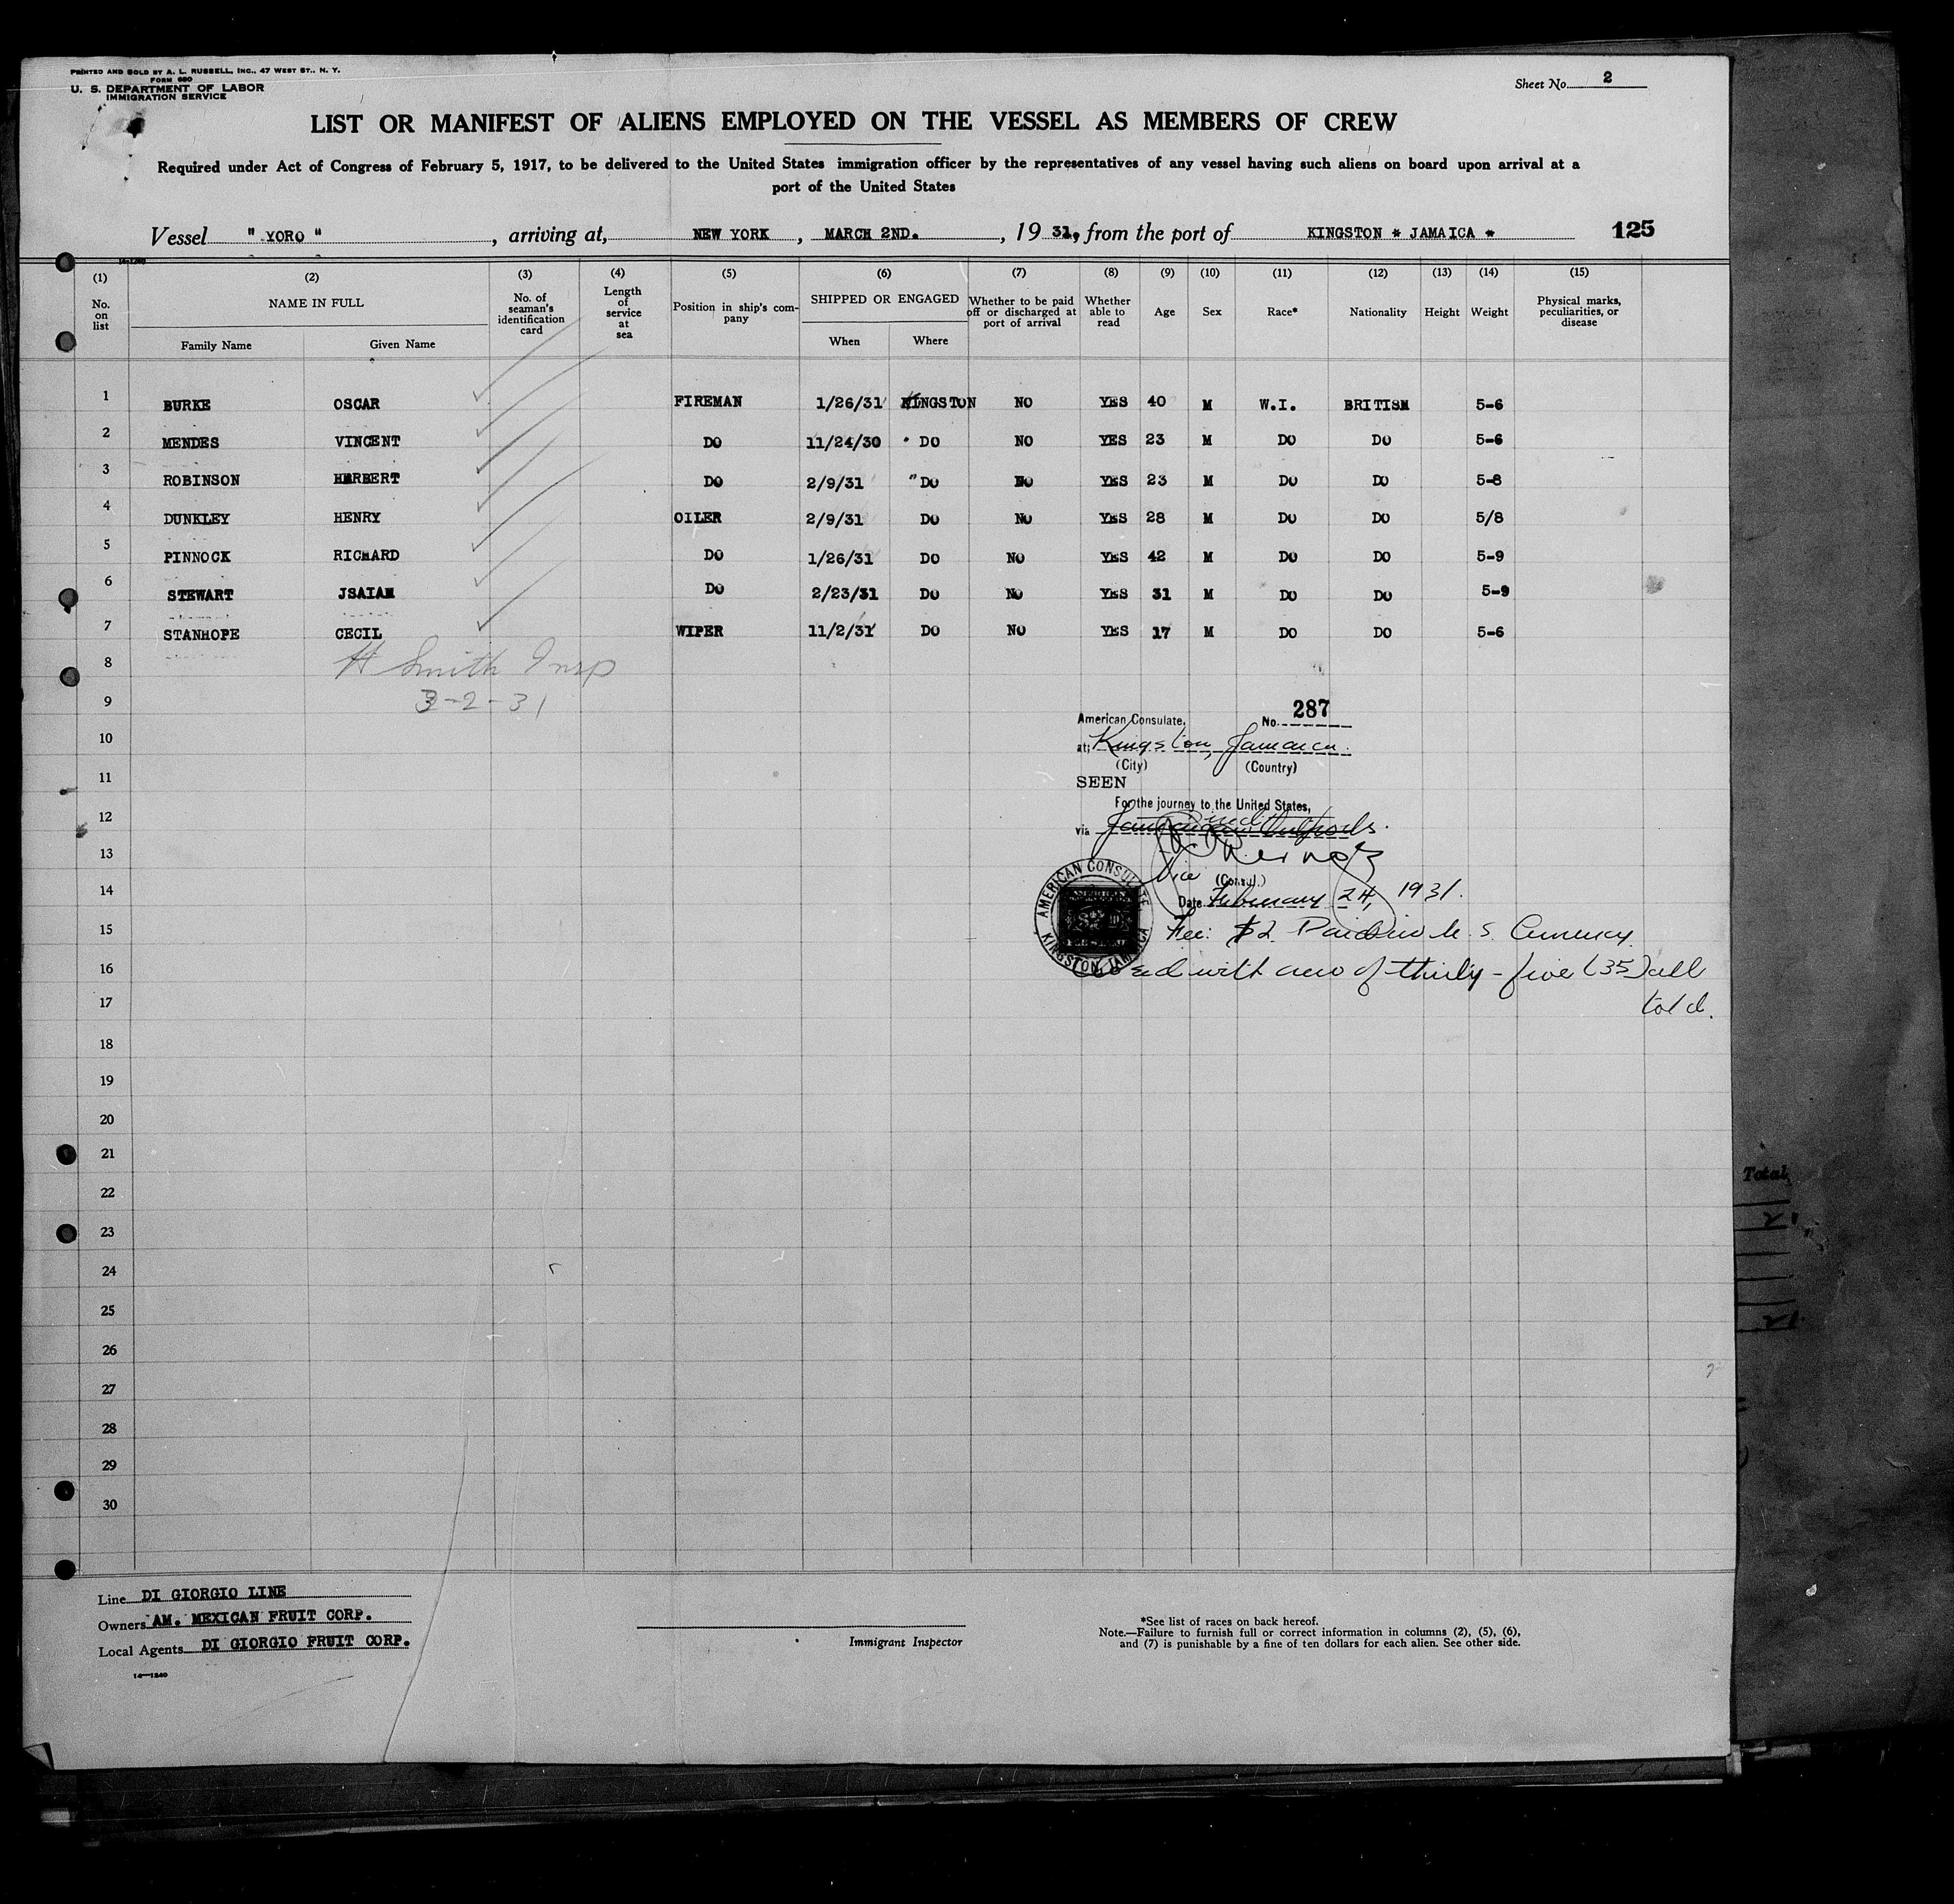 PRINTED AND SOLD BY A. L. RUSSELL, INC., 47 WEST ST., N. Y.
FORM 680
U. S. DEPARTMENT OF LABOR
IMMIGRATION SERVICE
Sheet No. 2
LIST OR MANIFEST OF ALIENS EMPLOYED ON THE VESSEL AS MEMBERS OF CREW
Required under Act of Congress of February 5, 1917, to be delivered to the United States immigration officer by the representatives of any vessel having such aliens on board upon arrival at a
port of the United States
Vessel " YORO ", arriving at, NEW YORK, MARCH 2ND., 19 31, from the port of KINGSTON * JAMAICA * 125
14-1240
(1) (2) (3) (4) (5) (6) (7) (8) (9) (10) (11) (12) (13) (14) (15)
No. on list NAME IN FULL No. of seaman's identification card Length of service at sea Position in ship's company SHIPPED OR ENGAGED Whether to be paid off or discharged at port of arrival Whether able to read Age Sex Race* Nationality Height Weight Physical marks, peculiarities, or disease
Family Name Given Name When Where
1 BURKE OSCAR FIREMAN 1/26/31 KINGSTON NO YES 40 M W.I. BRITISH 5-6
2 MENDES VINCENT DO 11/24/30 " DO NO YES 23 M DO DO 5-6
3 ROBINSON HERBERT DO 2/9/31 " DO NO YES 23 M DO DO 5-8
4 DUNKLEY HENRY OILER 2/9/31 DO NO YES 28 M DO DO 5/8
5 PINNOCK RICHARD DO 1/26/31 DO NO YES 42 M DO DO 5-9
6 STEWART JSAIAH DO 2/23/31 DO NO YES 31 M DO DO 5-9
7 STANHOPE CECIL WIPER 11/2/31 DO NO YES 17 M DO DO 5-6
8 H Smith Insp
9 3-2-31
10
11
12
13
14
15
16
17
18
19
20
21
22
23
24
25
26
27
28
29
30
American Consulate, No. 287
at: Kingston, Jamaica.
(City) (Country)
SEEN
For the journey to the United States,
via
Vice (Consul.)
Date February 24, 1931.
AMERICAN CONSULATE KINGSTON, JAMAICA
Fee: $2. Paid in U. S. Currency.
with crew of thirty-five (35) all
told.
Line DI GIORGIO LINE
Owners AM. MEXICAN FRUIT CORP.
Local Agents DI GIORGIO FRUIT CORP.
14-1240
Immigrant Inspector
*See list of races on back hereof.
Note.—Failure to furnish full or correct information in columns (2), (5), (6),
and (7) is punishable by a fine of ten dollars for each alien. See other side.
Total